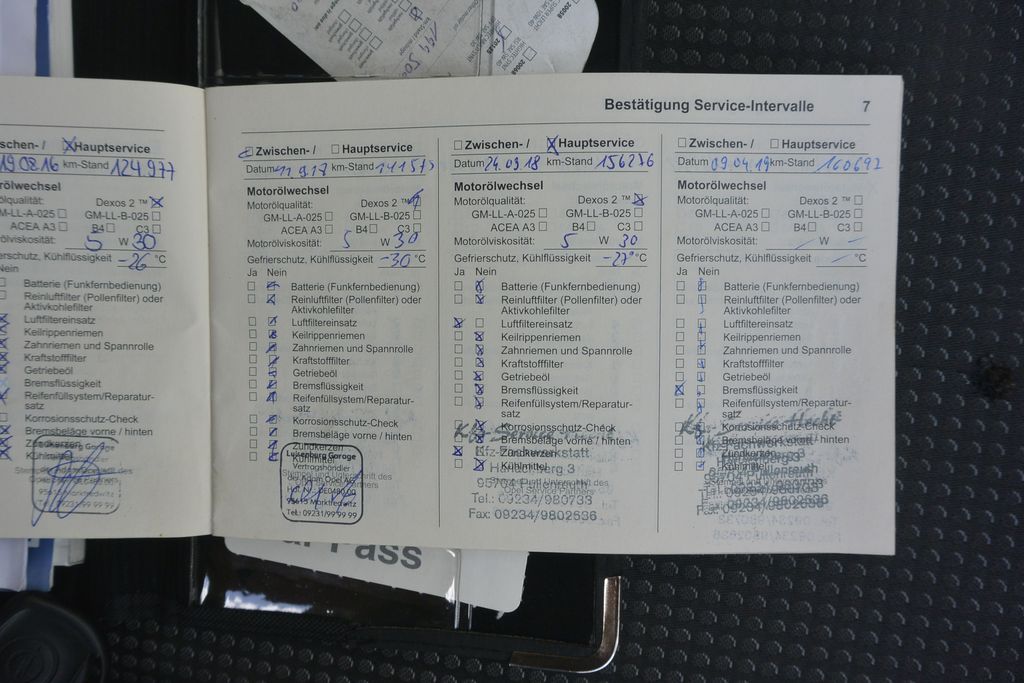 Bestätigung Service-Intervalle 7
schen-/ Hauptservice
19.08.16 km-Stand 124.977
rölwechsel
torölqualität: Dexos 2 ™
GM-LL-A-025 GM-LL-B-025
ACEA A3 B4 C3
rölviskosität: 5 W 30
efrierschutz, Kühlflüssigkeit -26 °C
Nein
Batterie (Funkfernbedienung)
Reinluftfilter (Pollenfilter) oder
Aktivkohlefilter
Luftfiltereinsatz
Keilrippenriemen
Zahnriemen und Spannrolle
Kraftstofffilter
Getriebeöl
Bremsflüssigkeit
Reifenfüllsystem/Reparatur-
satz
Korrosionsschutz-Check
Bremsbeläge vorne / hinten
Zündkerzen
Kühlmittel
Zwischen-/ Hauptservice
Datum km-Stand
Motorölwechsel
Motorölqualität: Dexos 2 ™
GM-LL-A-025 GM-LL-B-025
ACEA A3 B4 C3
Motorölviskosität: 5 W 30
Gefrierschutz, Kühlflüssigkeit -30 °C
Ja Nein
Batterie (Funkfernbedienung)
Reinluftfilter (Pollenfilter) oder
Aktivkohlefilter
Luftfiltereinsatz
Keilrippenriemen
Zahnriemen und Spannrolle
Kraftstofffilter
Getriebeöl
Bremsflüssigkeit
Reifenfüllsystem/Reparatur-
satz
Korrosionsschutz-Check
Bremsbeläge vorne / hinten
Zündkerzen
Kühlmittel
Luxenburg Garage
Vertragshändler
der Adam Opel AG
95615 Marktredwitz
Tel.: 09231/99 99 99
Zwischen-/ Hauptservice
Datum 24.09.18 km-Stand 156236
Motorölwechsel
Motorölqualität: Dexos 2 ™
GM-LL-A-025 GM-LL-B-025
ACEA A3 B4 C3
Motorölviskosität: 5 W 30
Gefrierschutz, Kühlflüssigkeit -27° °C
Ja Nein
Batterie (Funkfernbedienung)
Reinluftfilter (Pollenfilter) oder
Aktivkohlefilter
Luftfiltereinsatz
Keilrippenriemen
Zahnriemen und Spannrolle
Kraftstofffilter
Getriebeöl
Bremsflüssigkeit
Reifenfüllsystem/Reparatur-
satz
Korrosionsschutz-Check
Bremsbeläge vorne / hinten
Zündkerzen
Kühlmittel
Stempel und Unterschrift des
Opel Service Partners
95704 Pullenreuth
Tel.: 09234/980733
Fax: 09234/9802636
Zwischen-/ Hauptservice
Datum 09.04.19 km-Stand 160692
Motorölwechsel
Motorölqualität: Dexos 2 ™
GM-LL-A-025 GM-LL-B-025
ACEA A3 B4 C3
Motorölviskosität: W
Gefrierschutz, Kühlflüssigkeit °C
Ja Nein
Batterie (Funkfernbedienung)
Reinluftfilter (Pollenfilter) oder
Aktivkohlefilter
Luftfiltereinsatz
Keilrippenriemen
Zahnriemen und Spannrolle
Kraftstofffilter
Getriebeöl
Bremsflüssigkeit
Reifenfüllsystem/Reparatur-
satz
Korrosionsschutz-Check
Bremsbeläge vorne / hinten
Zündkerzen
Kühlmittel
Pass